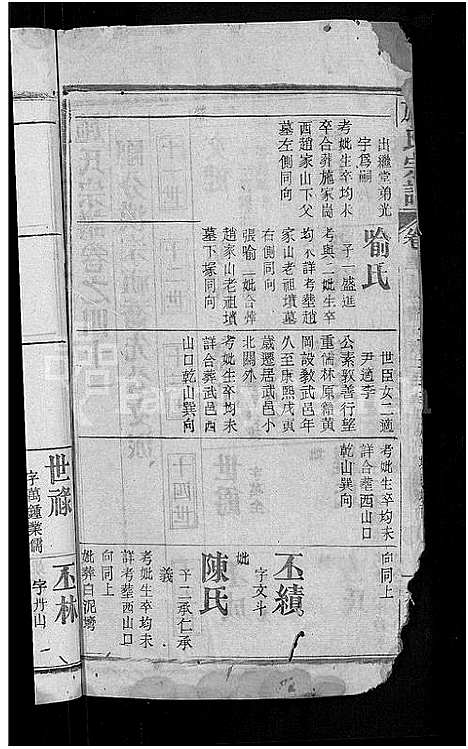 施氏宗譜
卷
出繼堂弟光
字爲嗣
考妣生卒均未
卒合葬施家崗
西趙家山下父
墓左側同向
喻氏
子一盛進
考與二妣生卒
均未詳考塟趙
家山老祖墳墓
右側同向
張喻二妣合塟
趙家山老祖墳
墓下塚同向
世臣女二適
尹適李
公素敦善行望
重儒林原籍黃
岡設教武邑年
八至康熙戊寅
歲遷居武邑小
北關外
考妣生卒均未
詳合葬武邑西
山口乾山巽向
考妣生卒均未
詳合塟西山口
乾山巽向
向同上
丕績
字文斗
妣
陳氏
子二承仁承
義
考妣生卒均未
詳考塟西山口
向同上
妣葬白泥塆
世祿
字萬鍾業儒
丕林
字丹山
一